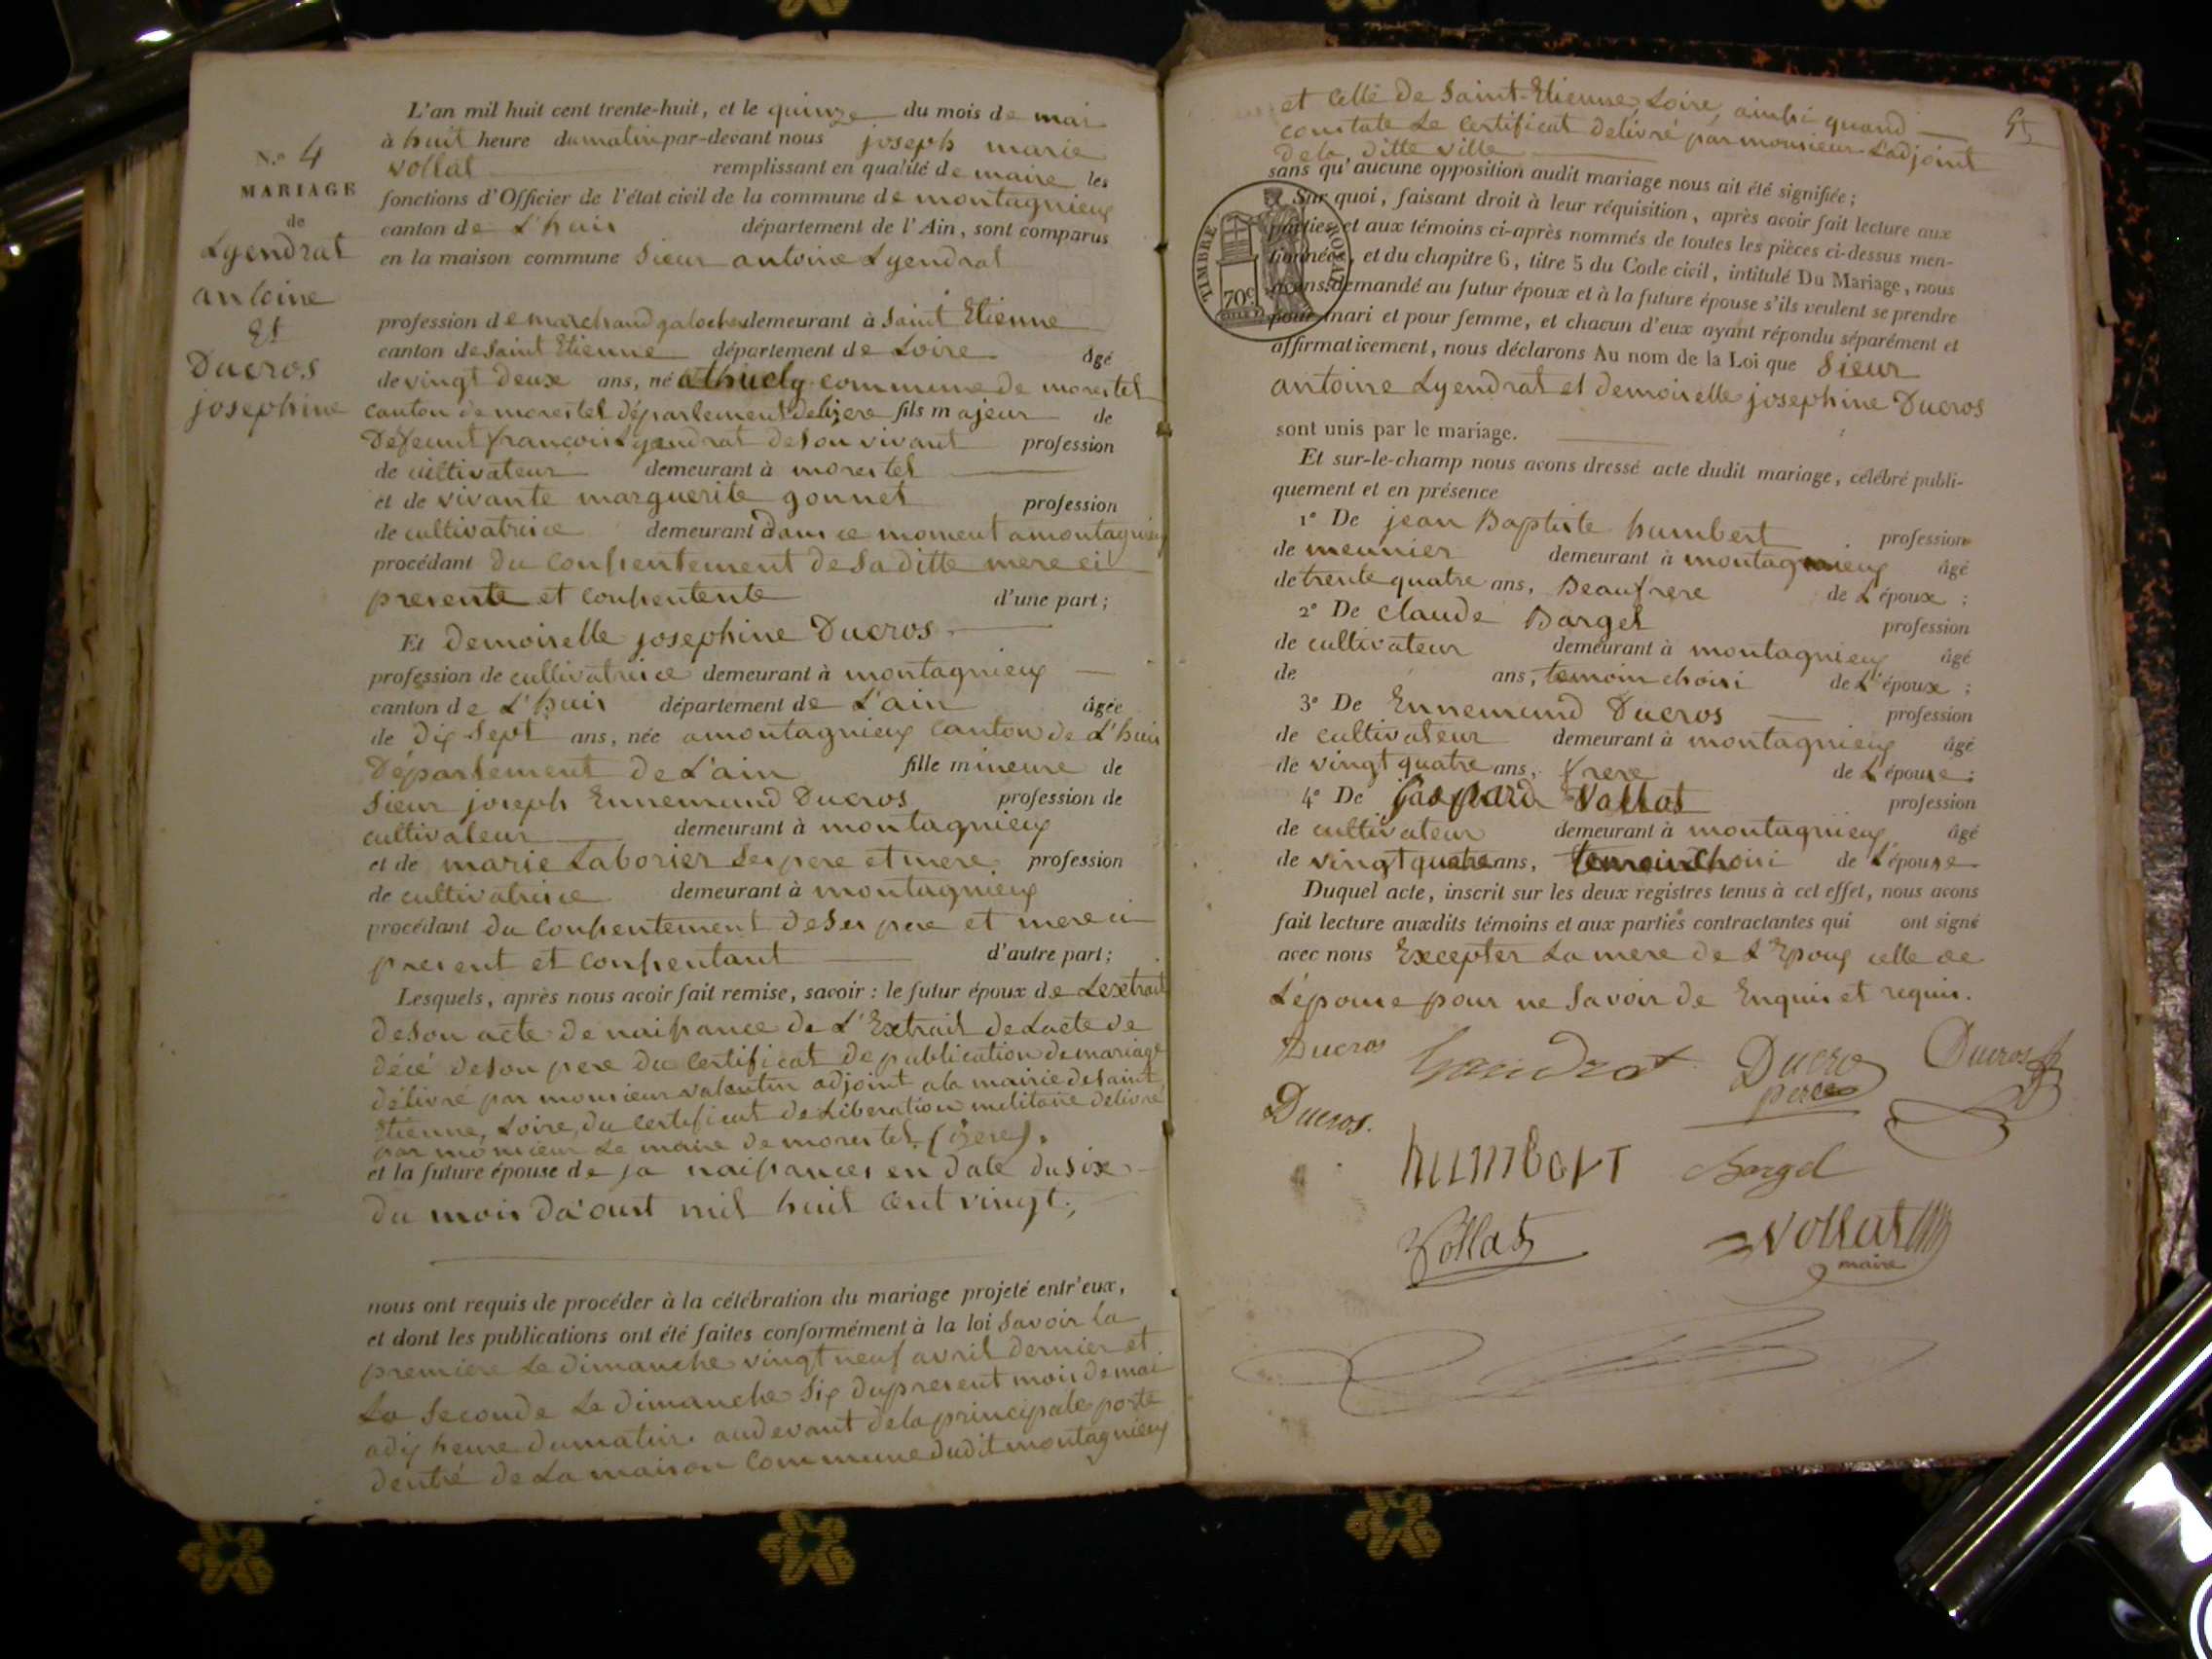 N.° 4
MARIAGE
de
Lyendrat
antoine
Et
Ducros
josephine
L'an mil huit cent trente-huit, et le quinze du mois de mai
à huit heure du matin par-devant nous joseph marie
vollat remplissant en qualité de maire les
fonctions d'Officier de l'état civil de la commune de montagnieux
canton de L'huis département de l'Ain, sont comparus
en la maison commune Sieur antoine Lyendrat
profession de marchand galocher demeurant à Saint Etienne
canton de Saint Etienne département de Loire âgé
de vingt deux ans, né a thuely commune de morestel
canton de morestel département de lizere fils majeur de
Defeunt francois Lyendrat de son vivant profession
de cultivateur demeurant à morestel
et de vivante marguerite gonnet profession
de cultivatrice demeurant à dans ce moment a montagnieux
procédant du consentement de sa ditte mere ci
presente et consentente d'une part;
Et demoiselle josephine Ducros
profession de cultivatrice demeurant à montagnieux
canton de L'huis département de L'ain âgée
de dix sept ans, née a montagnieux canton de L'huis
Département de L'ain fille mineure de
Sieur joseph Ennemund Ducros profession de
cultivateur demeurant à montagnieux
et de marie Laborier ses pere et mere profession
de cultivatrice demeurant à montagnieux
procédant du consentement de ses pere et mere ci
present et consentant d'autre part;
Lesquels, après nous avoir fait remise, savoir : le futur époux de Lextrait
de son acte de naissance de L'Extrait de Lacte de
décé de son pere du certificat de publication de mariage
délivré par monsieur valentin adjoint a la mairie de saint
Etienne, Loire, du certificat de Liberation militaire delivré
par monsieur Le maire de morestel (izere).
et la future épouse de sa naissances en date du six
du mois da'oust mil huit cent vingt,
nous ont requis de procéder à la célébration du mariage projeté entr'eux,
et dont les publications ont été faites conformément à la loi savoir la
premiere Le dimanche vingt neuf avril dernier et
La Seconde Le dimanche six du present mois de mai
a dix heure du matin au devant de la principale porte
dentré de La maison Commune du dit montagnieux
et celle de Saint-Etienne, Loire, ainsi quand
constate Le certificat delivré par monsieur Ladjoint
de la ditte ville
sans qu'aucune opposition audit mariage nous ait été signifiée;
Sur quoi, faisant droit à leur réquisition, après avoir fait lecture aux
parties et aux témoins ci-après nommés de toutes les pièces ci-dessus men-
tionnées, et du chapitre 6, titre 5 du Code civil, intitulé Du Mariage, nous
avons demandé au futur époux et à la future épouse s'ils veulent se prendre
pour mari et pour femme, et chacun d'eux ayant répondu séparément et
affirmativement, nous déclarons Au nom de la Loi que Sieur
antoine Lyendrat et demoiselle josephine Ducros
sont unis par le mariage.
Et sur-le-champ nous avons dressé acte dudit mariage, célébré publi-
quement et en présence
1° De jean Baptiste humbert profession
de meunier demeurant à montagnieux âgé
de trente quatre ans, Beaufrere de L'époux ;
2° De Claude Barget profession
de cultivateur demeurant à montagnieux âgé
de ans, temoin choisi de L'époux ;
3° De Ennemund Ducros profession
de cultivateur demeurant à montagnieux âgé
de vingt quatre ans, frere de L'épouse ;
4° De gaspard Vollat profession
de cultivateur demeurant à montagnieux âgé
de vingt quatre ans, temoin choisi de L'épouse
Duquel acte, inscrit sur les deux registres tenus à cet effet, nous avons
fait lecture auxdits témoins et aux parties contractantes qui ont signé
avec nous Excepter La mere de L'Epoux celle de
L'épouse pour ne Savoir de Enquis et requis.
TIMBRE ROYAL
70c
Ducros
Ducro
pere
Ducros
Ducros.
humbert
Barget
Vollat
Vollat
maire